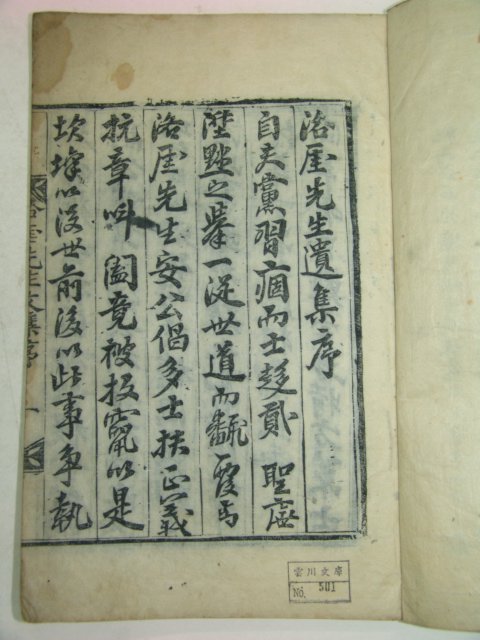 洛厓先生遺集序
自夫黨習痼而士趍貳 聖廡
陞黜之擧一從世道而飜覆焉
洛厓先生安公倡多士扶正義
抗章叫 閤竟被投竄以是
坎壈以沒世前後以此事爭執
雲川文庫
No. 501